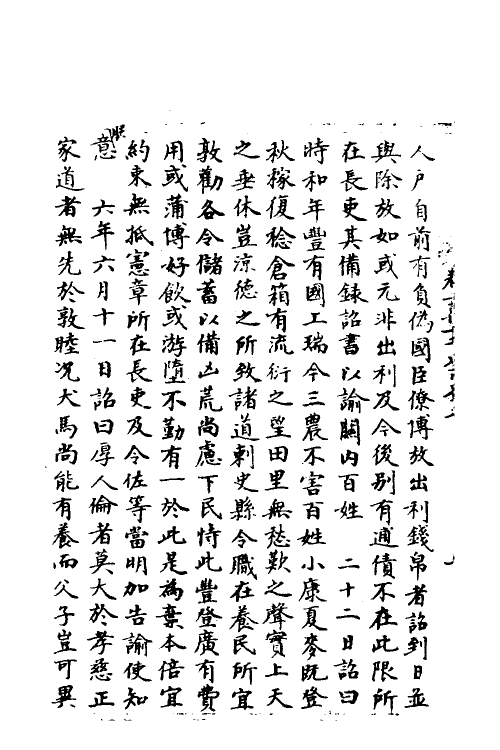 人戶自前有負偽國臣僚博放出利錢帛者詔到日並
與除放如或元非出利及今後别有逋債不在此限所
在長吏其備録詔書以諭關内百姓　二十二日詔曰
時和年豐有國工瑞今三農不害百姓小康夏麥既登
秋稼復稔倉箱有流衍之望田里無愁歎之聲實上天
之垂休豈涼德之所致諸道刺史縣令職在養民所宜
敦勸各令儲蓄以備凶荒尚慮下民恃此豐登廣有費
用或蒲博好飲或游墮不勤有一於此是為棄本倍宜
約束無抵憲章所在長吏及令佐等當明加告諭使知
朕意　六年六月十一日詔曰厚人倫者莫大於孝慈正
家道者無先於敦睦况犬馬尚能有養而父子豈可異